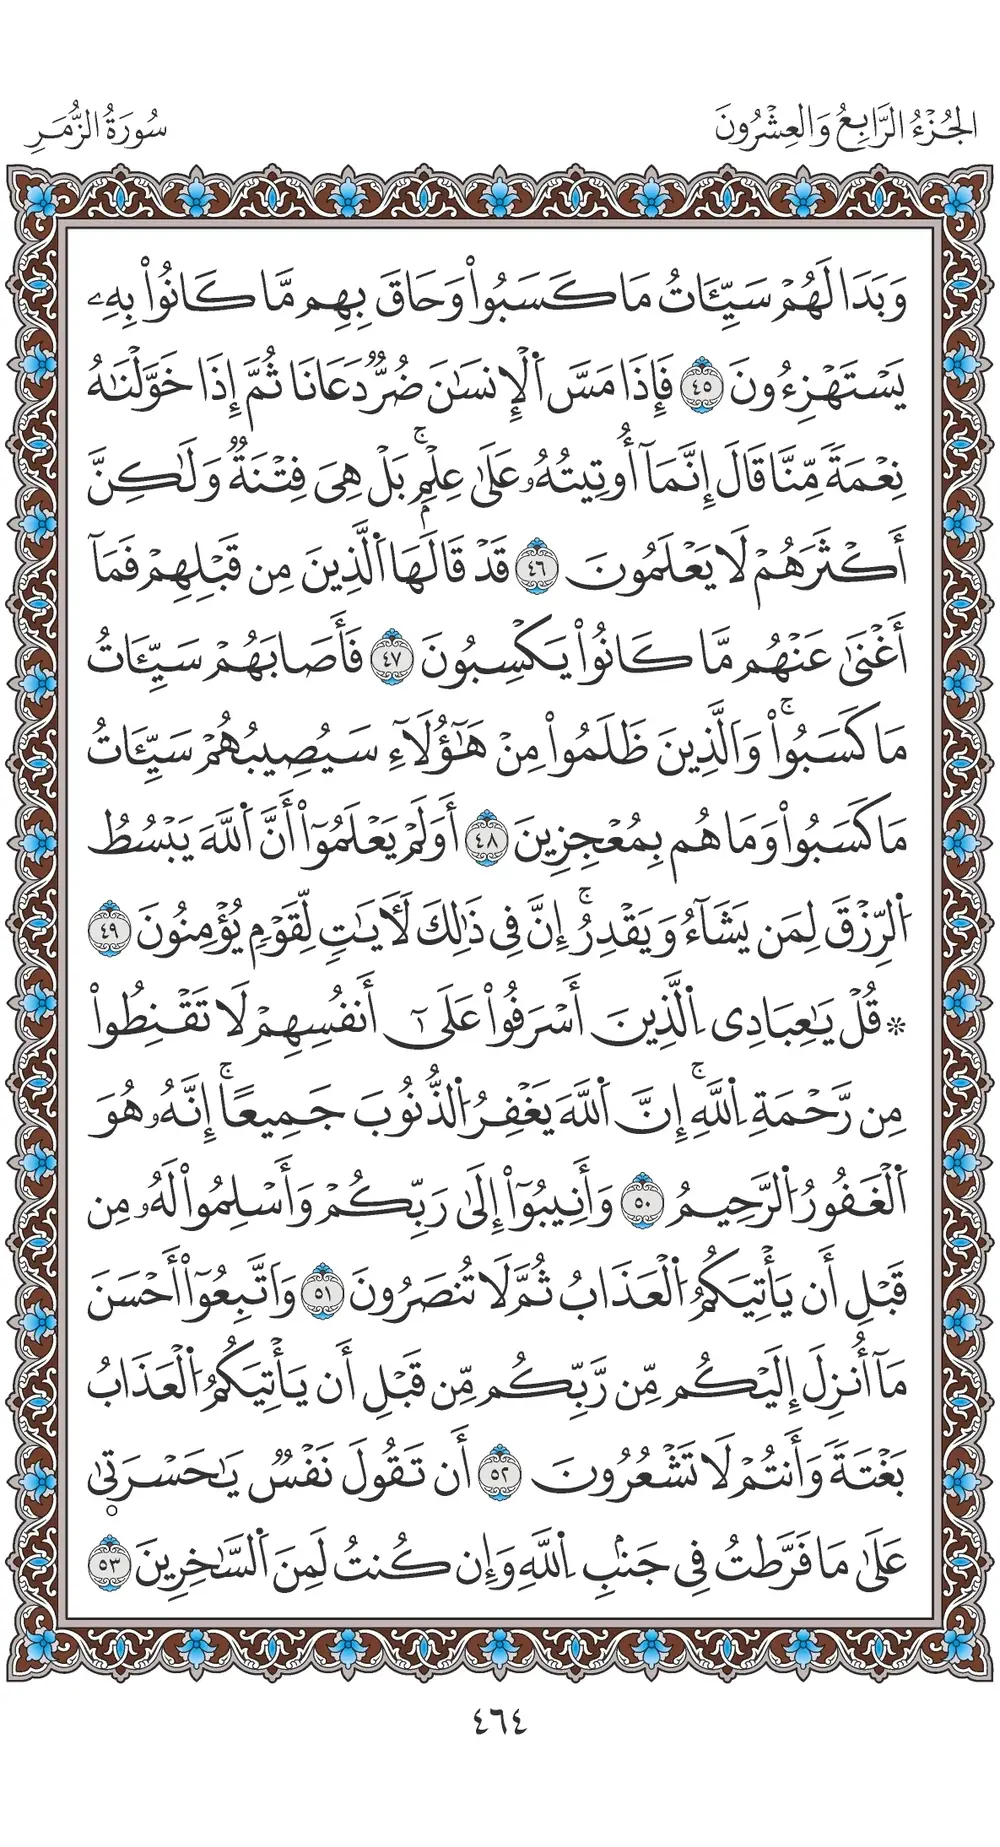 الجُزْءُ الرَّابِعُ وَالعِشْرُونَ
سُورَةُ الزُّمَرِ
وَبَدَا لَهُمْ سَيِّـَٔاتُ مَا كَسَبُواْ وَحَاقَ بِهِم مَّا كَانُواْ بِهِۦ
يَسْتَهْزِءُونَ ٤٥ فَإِذَا مَسَّ اَ۬لْإِنسَٰنَ ضُرّٞ دَعَانَا ثُمَّ إِذَا خَوَّلْنَٰهُ
نِعْمَةٗ مِّنَّا قَالَ إِنَّمَآ أُوتِيتُهُۥ عَلَىٰ عِلْمِۢۚ بَلْ هِيَ فِتْنَةٞ وَلَٰكِنَّ
أَكْثَرَهُمْ لَا يَعْلَمُونَ ٤٦ قَدْ قَالَهَا اَ۬لَّذِينَ مِن قَبْلِهِمْ فَمَآ
أَغْنَىٰ عَنْهُم مَّا كَانُواْ يَكْسِبُونَ ٤٧ فَأَصَابَهُمْ سَيِّـَٔاتُ
مَا كَسَبُواْۚ وَالَّذِينَ ظَلَمُواْ مِنْ هَٰٓؤُلَآءِ سَيُصِيبُهُمْ سَيِّـَٔاتُ
مَا كَسَبُواْ وَمَا هُم بِمُعْجِزِينَ ٤٨ أَوَلَمْ يَعْلَمُوٓاْ أَنَّ اَ۬للَّهَ يَبْسُطُ
اُ۬لرِّزْقَ لِمَن يَشَآءُ وَيَقْدِرُۚ إِنَّ فِي ذَٰلِكَ لَأٓيَٰتٖ لِّقَوْمٖ يُؤْمِنُونَ ٤٩
۞ قُلْ يَٰعِبَادِي اِ۬لَّذِينَ أَسْرَفُواْ عَلَىٰٓ أَنفُسِهِمْ لَا تَقْنِطُواْ
مِن رَّحْمَةِ اِ۬للَّهِۚ إِنَّ اَ۬للَّهَ يَغْفِرُ اُ۬لذُّنُوبَ جَمِيعًاۚ إِنَّهُۥ هُوَ
اَ۬لْغَفُورُ اُ۬لرَّحِيمُ ٥٠ وَأَنِيبُوٓاْ إِلَىٰ رَبِّكُمْ وَأَسْلِمُواْ لَهُۥ مِن
قَبْلِ أَن يَأْتِيَكُمُ اُ۬لْعَذَابُ ثُمَّ لَا تُنصَرُونَ ٥١ وَاتَّبِعُوٓاْ أَحْسَنَ
مَآ أُنزِلَ إِلَيْكُم مِّن رَّبِّكُم مِّن قَبْلِ أَن يَأْتِيَكُمُ اُ۬لْعَذَابُ
بَغْتَةٗ وَأَنتُمْ لَا تَشْعُرُونَ ٥٢ أَن تَقُولَ نَفْسٞ يَٰحَسْرَتٜىٰ
عَلَىٰ مَا فَرَّطتُ فِي جَنۢبِ اِ۬للَّهِ وَإِن كُنتُ لَمِنَ اَ۬لسَّٰخِرِينَ ٥٣
٤٦٤